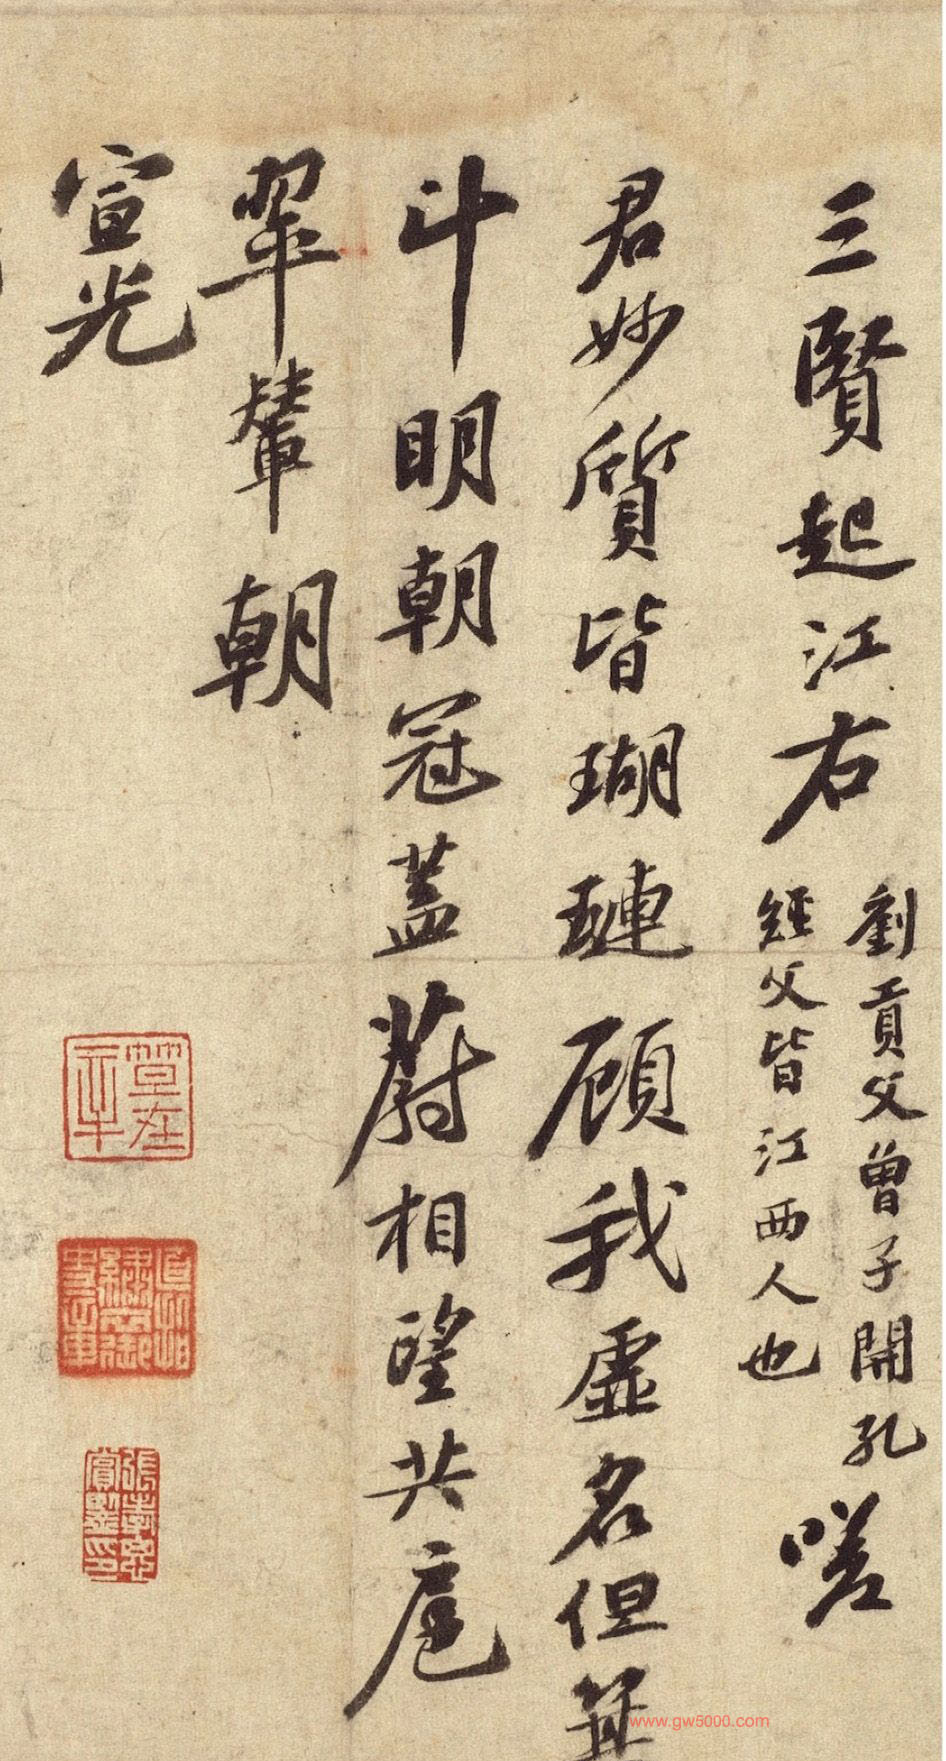 三賢起江右
劉貢父曾子開孔
經父皆江西人也
嗟
君妙質皆瑚璉顧我虛名但箕
斗明朝冠蓋蔚相望共扈
翠輦朝
宣光
張孝思
賞鑒印
www.gw5000.com